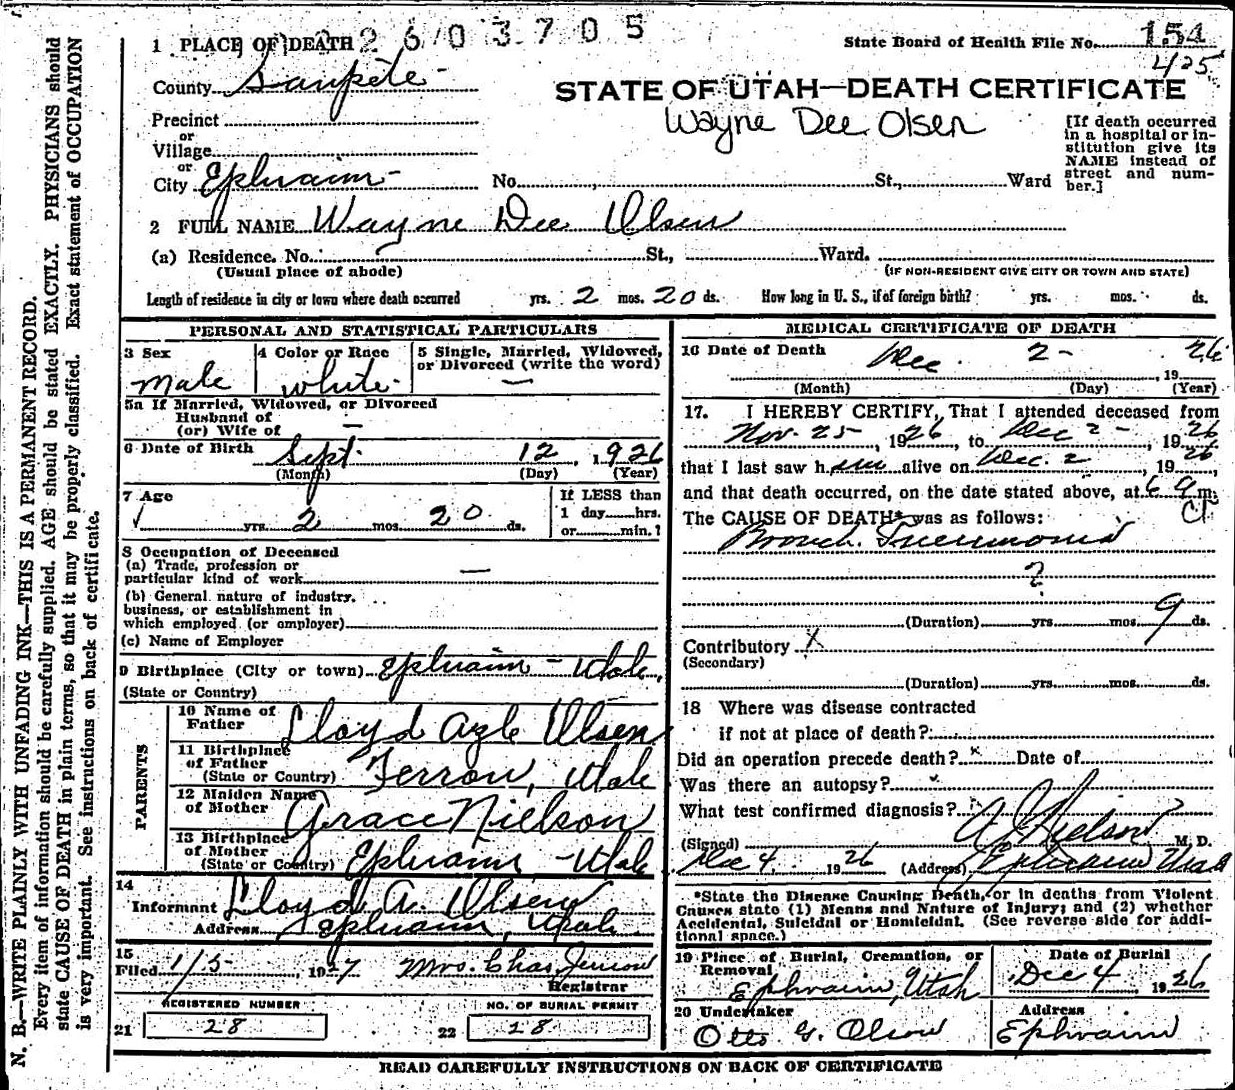 2603705
1 PLACE OF DEATH
State Board of Health File No. 154
425
County Sanpete
STATE OF UTAH—DEATH CERTIFICATE
Wayne Dee Olsen
Precinct
or
Village
or
City Ephraim No. , St., Ward
[If death occurred
in a hospital or in-
stitution give its
NAME instead of
street and num-
ber.]
2 FULL NAME Wayne Dee Olsen
(a) Residence. No. St., Ward.
(Usual place of abode) (IF NON-RESIDENT GIVE CITY OR TOWN AND STATE)
Length of residence in city or town where death occurred yrs. 2 mos. 20 ds. How long in U. S., if of foreign birth? yrs. mos. ds.
PERSONAL AND STATISTICAL PARTICULARS
3 Sex
Male
4 Color or Race
White
5 Single, Married, Widowed,
or Divorced (write the word)
—
5a If Married, Widowed, or Divorced
Husband of
(or) Wife of —
6 Date of Birth Sept. 12, 1926
(Month) (Day) (Year)
7 Age
yrs. 2 mos. 20 ds.
If LESS than
1 day hrs.
or min.?
8 Occupation of Deceased
(a) Trade, profession or
particular kind of work —
(b) General nature of industry,
business, or establishment in
which employed (or employer)
(c) Name of Employer
9 Birthplace (City or town) Ephraim - Utah,
(State or Country)
PARENTS
10 Name of
Father Lloyd Azle Olsen
11 Birthplace
of Father
(State or Country) Ferron, Utah
12 Maiden Name
of Mother Grace Nielson
13 Birthplace
of Mother
(State or Country) Ephraim - Utah
14
Informant Lloyd A. Olsen
Address Ephraim, Utah
15
Filed 1/5, 1927 Mrs. Chas Jenson
Registrar
REGISTERED NUMBER
21 28
NO. OF BURIAL PERMIT
22 28
MEDICAL CERTIFICATE OF DEATH
16 Date of Death Dec. 2 - 1926
(Month) (Day) (Year)
17. I HEREBY CERTIFY, That I attended deceased from
Nov. 25, 1926, to Dec 2 -, 1926
that I last saw him alive on Dec. 2, 1926,
and that death occurred, on the date stated above, at 6 a m.
The CAUSE OF DEATH* was as follows:
Bronch. Pneumonia
?
(Duration) yrs. mos. 9 ds.
Contributory X
(Secondary)
(Duration) yrs. mos. ds.
18 Where was disease contracted
if not at place of death?
Did an operation precede death? x Date of
Was there an autopsy?
What test confirmed diagnosis?
(Signed) Nielson M. D.
Dec 4, 1926 (Address) Ephraim Utah
*State the Disease Causing Death, or in deaths from Violent
Causes state (1) Means and Nature of Injury; and (2) whether
Accidental, Suicidal or Homicidal. (See reverse side for addi-
tional space.)
19 Place of Burial, Cremation, or
Removal
Ephraim, Utah
Date of Burial
Dec 4 1926
20 Undertaker
Otto G. Olson
Address
Ephraim
READ CAREFULLY INSTRUCTIONS ON BACK OF CERTIFICATE
N. B.—WRITE PLAINLY WITH UNFADING INK—THIS IS A PERMANENT RECORD.
Every item of information should be carefully supplied. AGE should be stated EXACTLY. PHYSICIANS should
state CAUSE OF DEATH in plain terms, so that it may be properly classified. Exact statement of OCCUPATION
is very important. See instructions on back of certificate.